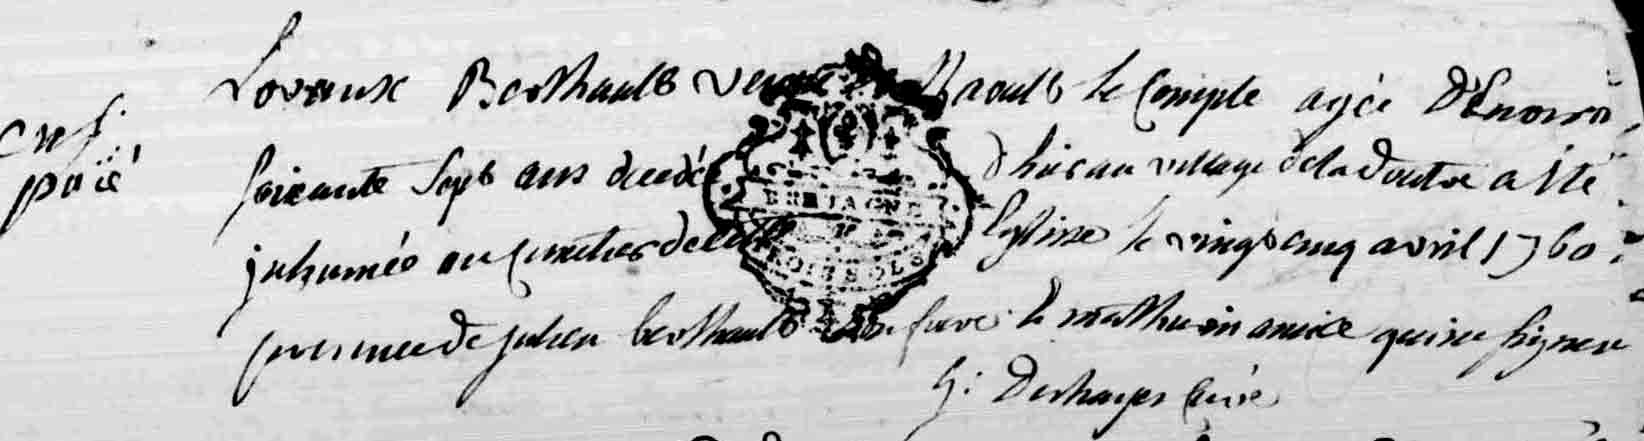 Lorance Berthault veuve Raoult le Compte agée d'Environ
enf.
païé
soixante sept ans decedé d'hier au village de la doutre a Eté
inhumée au cimetier de l'Eglise le vingt cinq avril 1760
presence de julien berthault son frere & mathurin amice qui ne signent
BRETAGNE
TROIS SOLS
G: Deshayes Curé